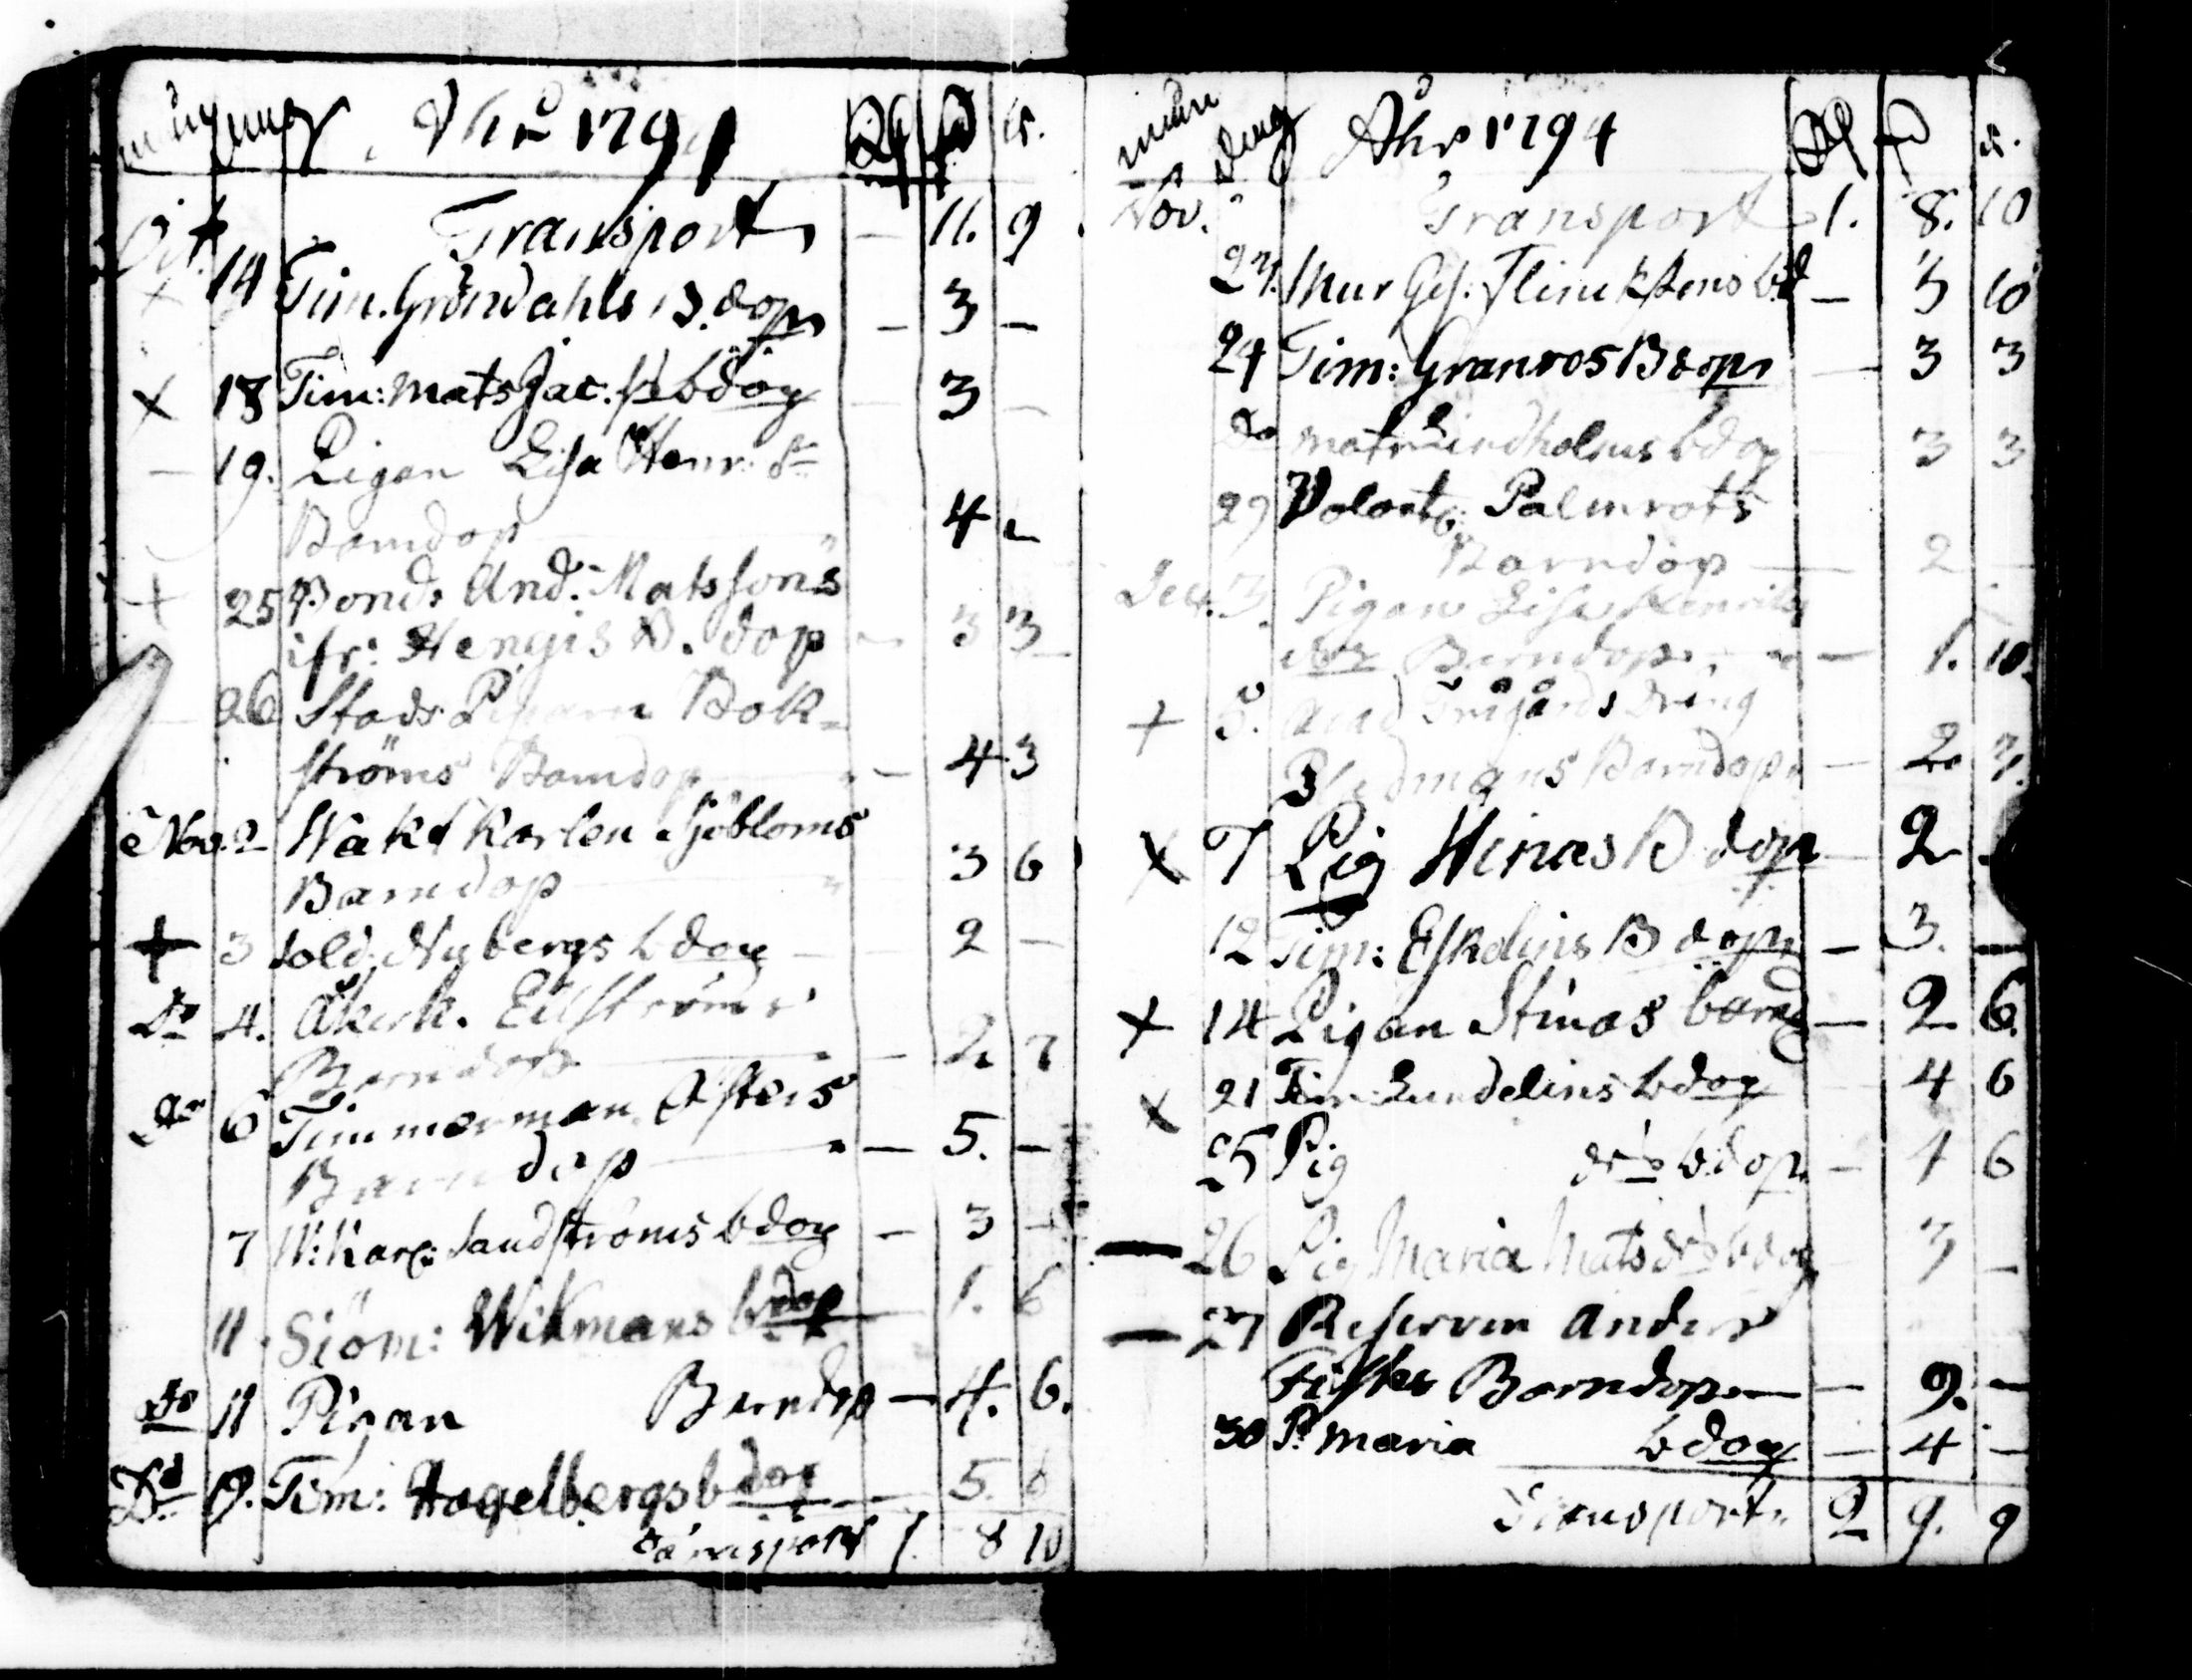 Åhr 1794
Transport — 11. 9
Oct. 14 Tim. Gröndahls B. dop — 3 —
× 18 Tim: Mats Jac. bdop — 3 —
— 19. Pigan Lisa Henr: dr
Barndop 4 —
+ 25 Bond: And: Matssons
ifr: Hengis B. dop — 3 3
— 26 Stads Bok-
ströms Barndop — 4 3
Nov. 2 Wakt Karlen Sjöbloms
Barndop 3 6
+ 3 Sold. Nybergs bdop — 2 —
Do 4. Åkerk. Edströms
Barndop — 2 7
Do 6 Timmerman Östers
Barndop — 5. —
7 W: Karl: Sandströms bdop — 3 —
11. Sjöm: Wikmans bdop 1. 6
Do 11 Pigan Barndop — 4. 6.
Do 19. Tim: Hagelbergs bdop — 5. 6
Transport 1. 8 10
Månn Dag Åhr 1794
Nov. Transport 1. 8. 10
Mur Ges: bd — 3 10
24 Tim: Granros B dop — 3 3
Do Matr Lindholms bdop 3 3
29 Palmrots
Barndop — 2 —
Dec. 3. Pigan Lisa Henriks
dr Barndop — 1. 10.
+ 5. dräng
Barndop — 2
× 7 Pig Stinas B dop — 2
12 Tim: Eskelins B dop — 3. —
× 14 Pigan Stinas barnd — 2 6.
× 21 Tim: Lundelins bdop 4 6
25 Pig drs bdop — 4 6
— 26 Pig Maria Mats drs bdop 3 —
— 27 Reserven Anders
Barndop — 9. —
30 P. Maria bdop — 4 —
Transport 2 9. 9